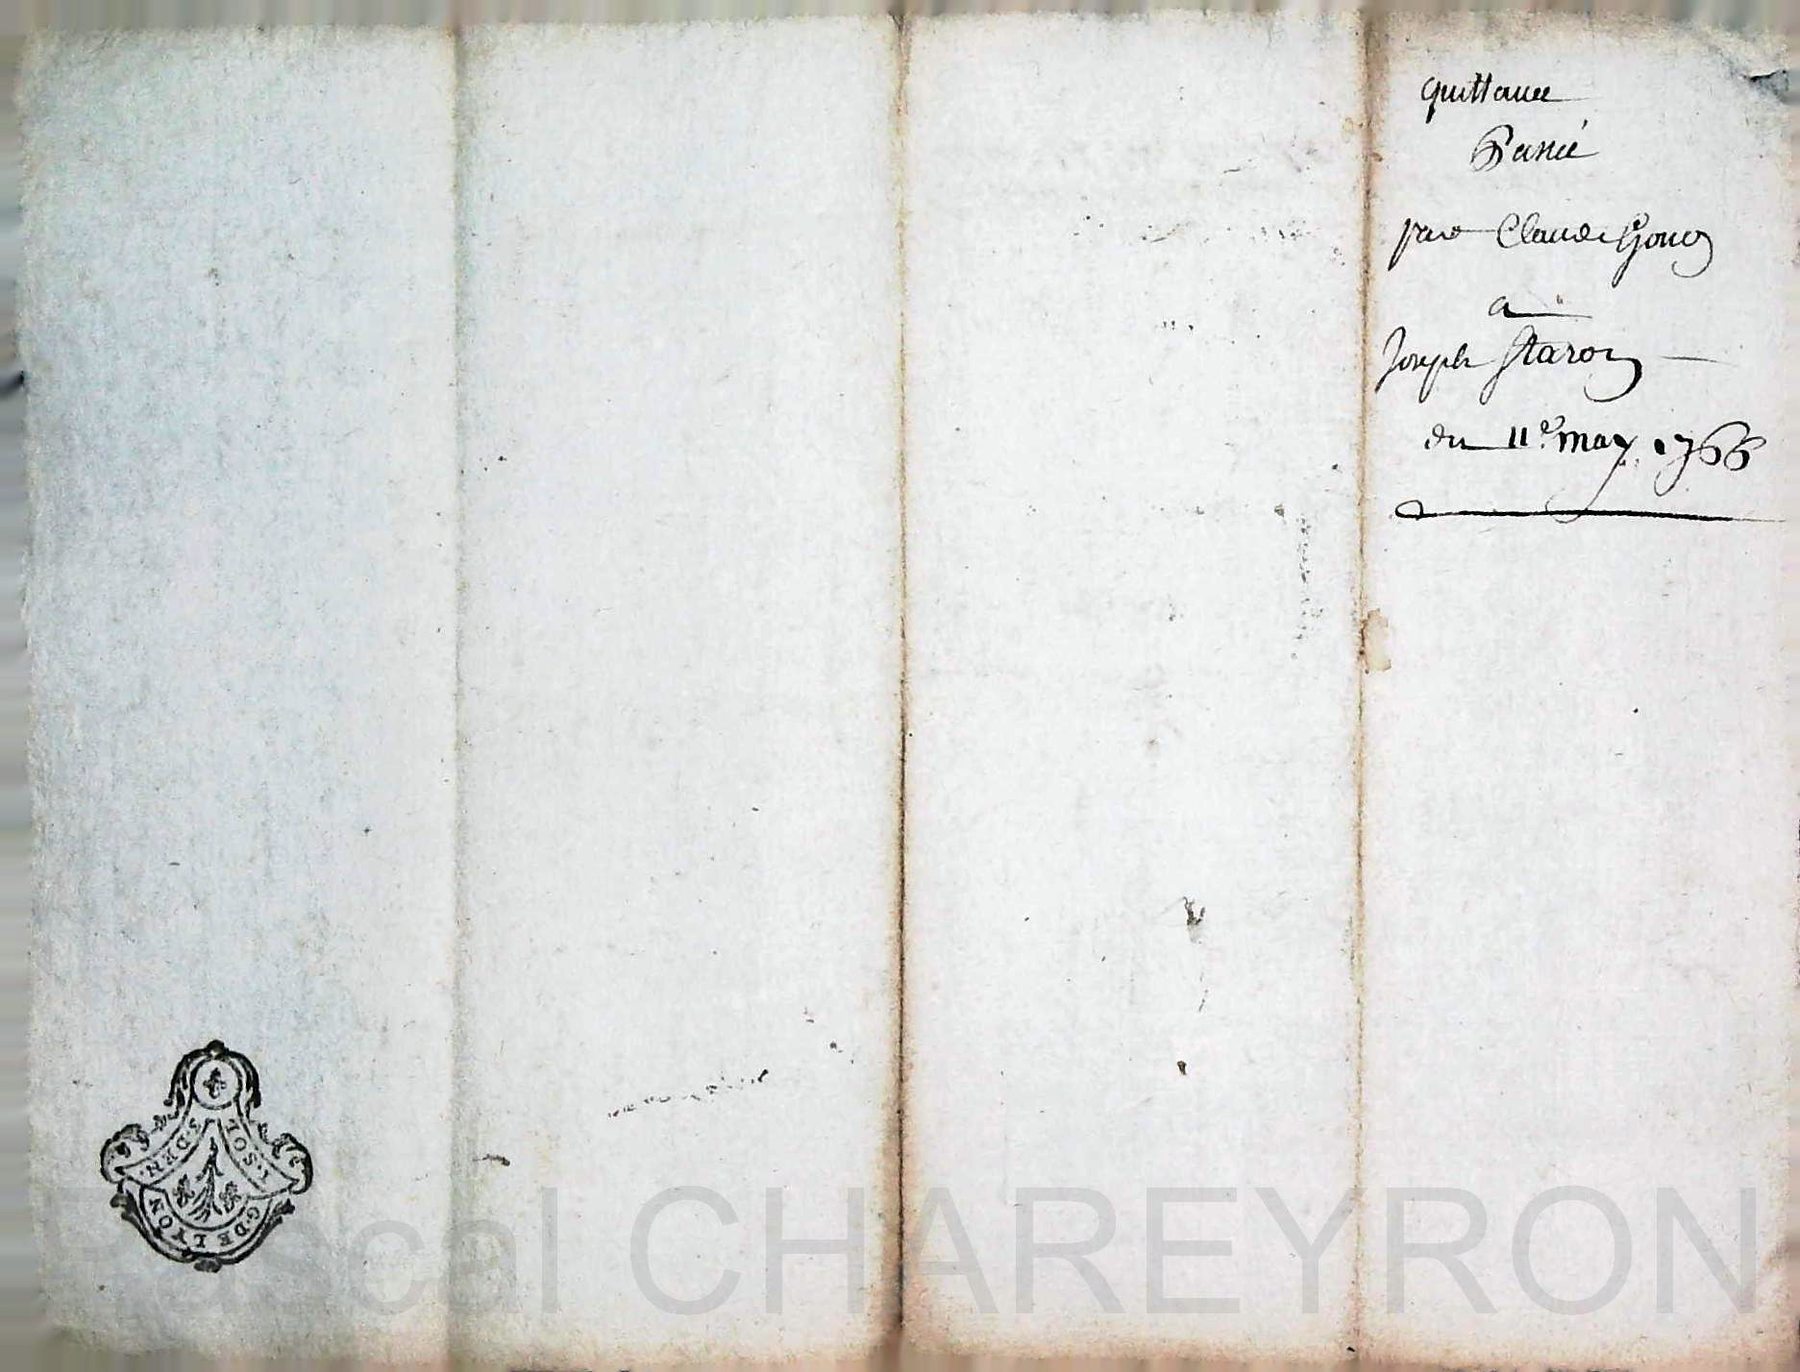 quittance
Passée
par Claude Gouy
a
Joseph Staron
du 11e may 1766
1.SOL
5.DEN.
G.DE LYON
Pascal CHAREYRON